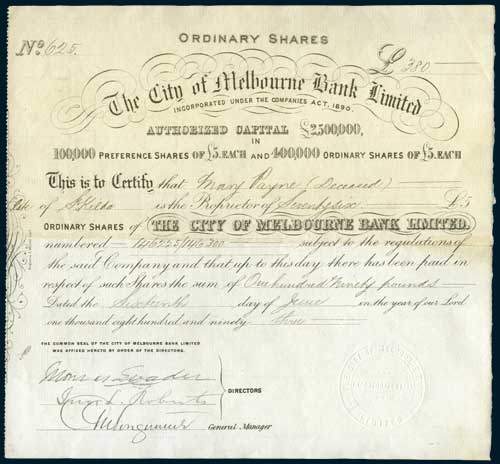 ORDINARY SHARES
No. 625.
£ 380
The City of Melbourne Bank Limited
INCORPORATED UNDER THE COMPANIES ACT, 1890.
AUTHORIZED CAPITAL £2,500,000,
IN
100,000 PREFERENCE SHARES OF £5. EACH AND 400,000 ORDINARY SHARES OF £5. EACH
This is to Certify that Mary Payne (Deceased)
late of St Kilda is the Proprietor of Seventy six £5
ORDINARY SHARES OF THE CITY OF MELBOURNE BANK LIMITED.
numbered 146225/146300 subject to the regulations of
the said Company and that up to this day there has been paid in
respect of such Shares the sum of One hundred & ninety pounds
Dated the Sixteenth day of June in the year of our Lord
one thousand eight hundred and ninety
THE COMMON SEAL OF THE CITY OF MELBOURNE BANK LIMITED
WAS AFFIXED HERETO BY ORDER OF THE DIRECTORS.
DIRECTORS
Roberts
General Manager